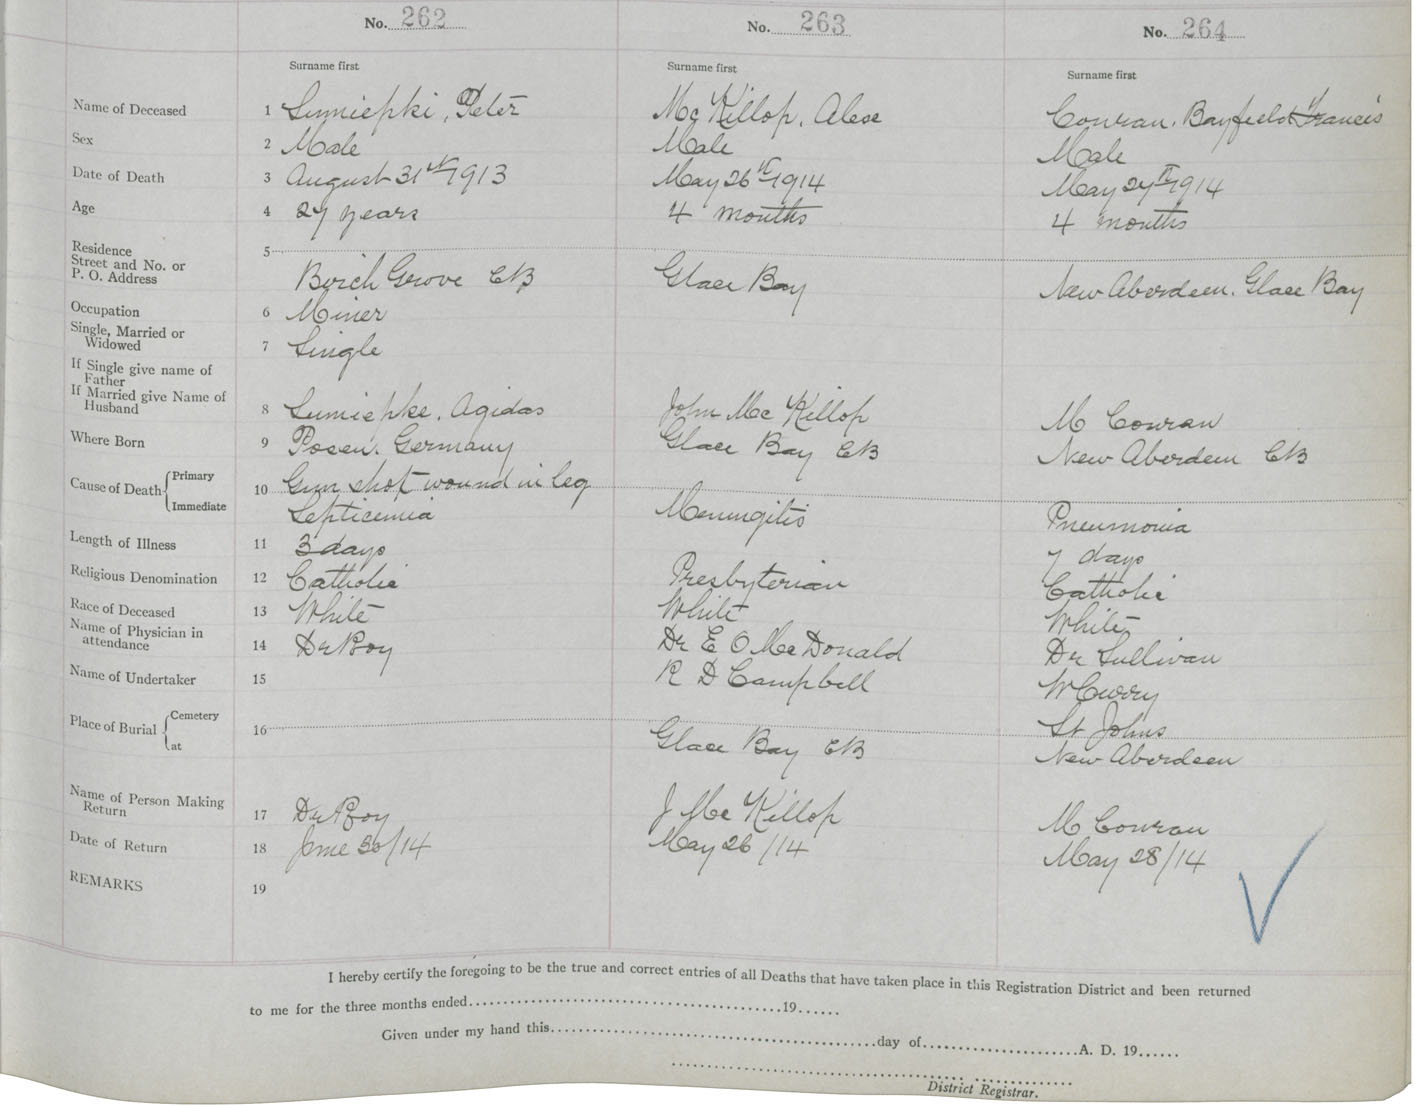 No. 262 No. 263 No. 264
Surname first Surname first Surname first
Name of Deceased 1 Sumiepki, Peter Mc Killop, Alese Conran, Bayfield Francis
Sex 2 Male Male Male
Date of Death 3 August 31st 1913 May 26th 1914 May 27th 1914
Age 4 27 years 4 months 4 months
Residence Street and No. or P. O. Address 5 Birch Grove CB Glace Bay New Aberdeen, Glace Bay
Occupation 6 Miner
Single, Married or Widowed 7 Single
If Single give name of Father
If Married give Name of Husband 8 Sumiepke, Agidas John Mc Killop M Conran
Where Born 9 Posen, Germany Glace Bay CB New Aberdeen CB
Cause of Death { Primary 10 Gun shot wound in leg
Immediate Septicemia Meningitis Pneumonia
Length of Illness 11 3 days 7 days
Religious Denomination 12 Catholic Presbyterian Catholic
Race of Deceased 13 White White White
Name of Physician in attendance 14 Dr Roy Dr E O Mc Donald Dr Sullivan
Name of Undertaker 15 R D Campbell W Curry
Place of Burial { Cemetery 16 St Johns
at Glace Bay CB New Aberdeen
Name of Person Making Return 17 Dr Roy J Mc Killop M Conran
Date of Return 18 June 30/14 May 26/14 May 28/14
REMARKS 19
I hereby certify the foregoing to be the true and correct entries of all Deaths that have taken place in this Registration District and been returned
to me for the three months ended 19
Given under my hand this day of A. D. 19
District Registrar.